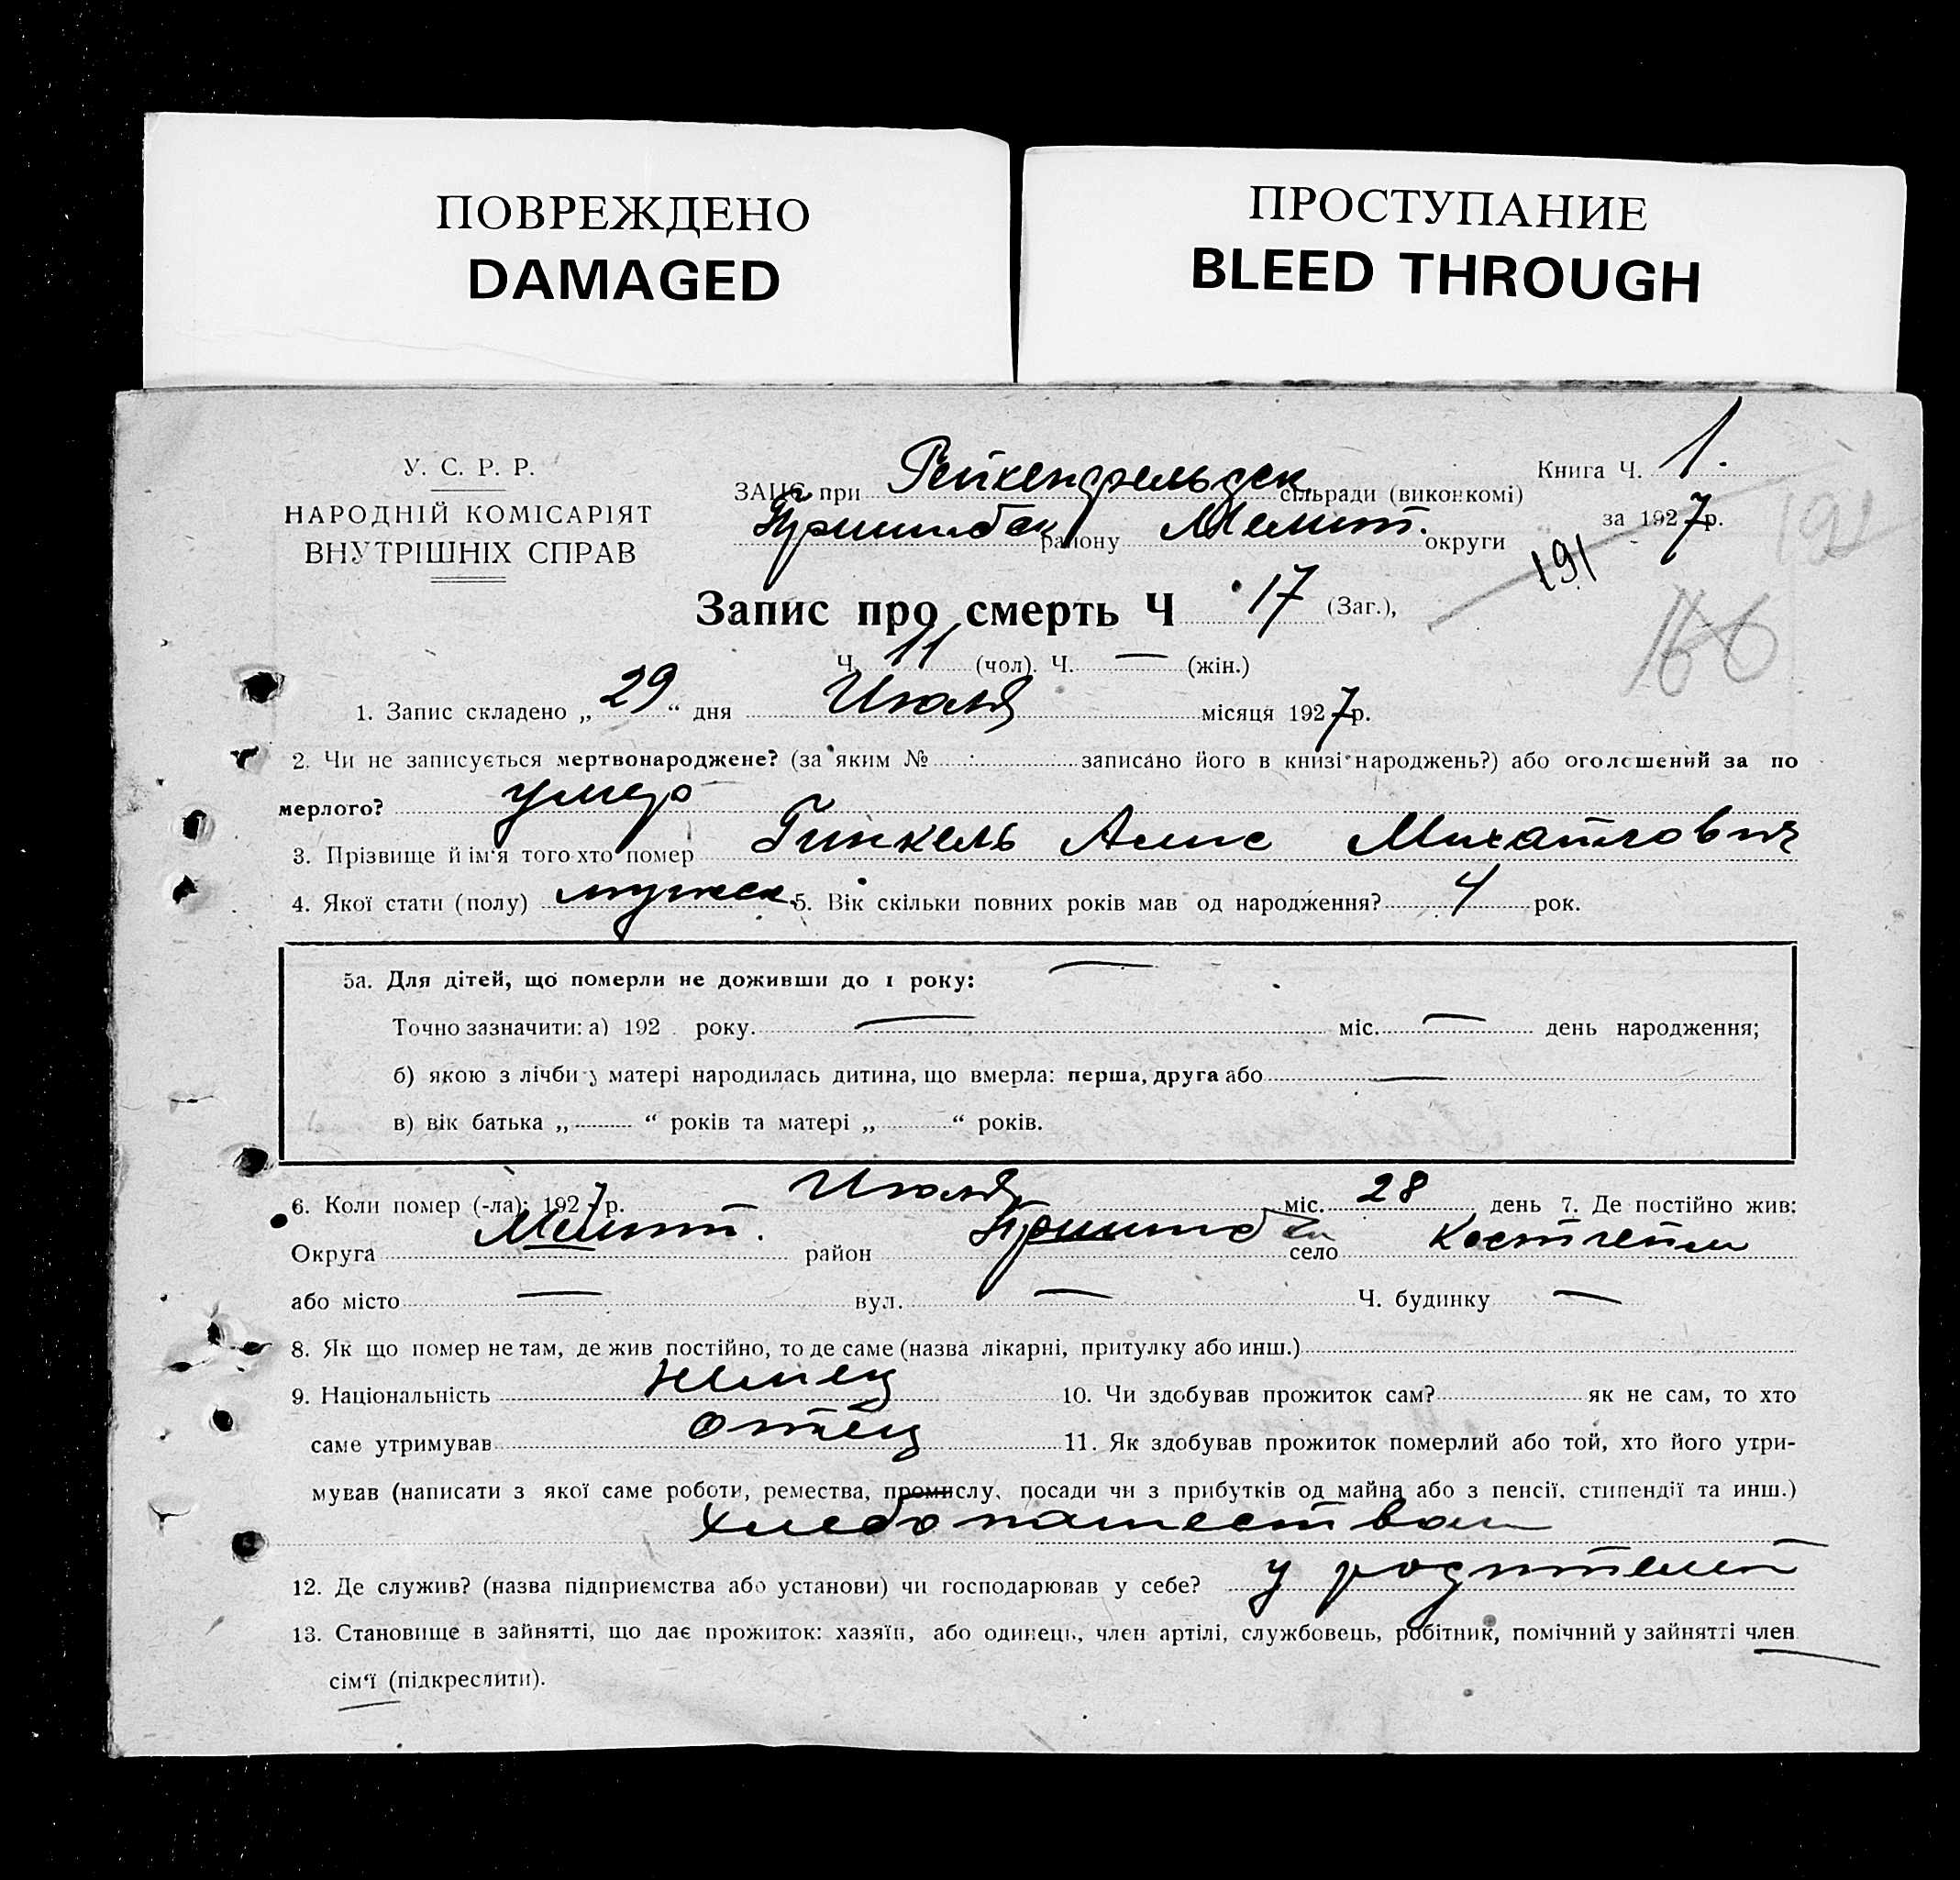 ПОВРЕЖДЕНО
DAMAGED
ПРОСТУПАНИЕ
BLEED THROUGH
У. С. Р. Р.
НАРОДНІЙ КОМІСАРІЯТ
ВНУТРІШНІХ СПРАВ
ЗАЦС при Рейкенфельдск сільради (виконкомі)
Пришибск району Мелит. округи
Книга Ч. 1.
за 1927 р.
191
192
166
Запис про смерть Ч 17 (Заг.),
Ч. 11 (чол). Ч. — (жін.)
1. Запис складено „ 29 “ дня Июля місяця 1927 р.
2. Чи не записується мертвонароджене? (за яким № записано його в книзі народжень?) або оголошений за по
мерлого? умер
3. Прізвище й ім'я того хто помер Гинкель Алис Михайлович
4. Якої стати (полу) мужск. 5. Вік скільки повних років мав од народження? 4 рок.
5а. Для дітей, що померли не доживши до 1 року: —
Точно зазначити: а) 192 року. — міс. — день народження;
б) якою з лічби у матері народилась дитина, що вмерла: перша, друга або —
в) вік батька „ “ років та матері „ “ років.
6. Коли помер (-ла): 1927 р. Июля міс. 28 день 7. Де постійно жив:
Округа Мелит. район Пришиб село Костгейм
або місто — вул. — Ч. будинку —
8. Як що помер не там, де жив постійно, то де саме (назва лікарні, притулку або инш.)
9. Національність немец 10. Чи здобував прожиток сам? як не сам, то хто
саме утримував отец 11. Як здобував прожиток померлий або той, хто його утри-
мував (написати з якої саме роботи, ремества, промислу, посади чи з прибутків од майна або з пенсії, стипендії та инш.)
хлебопашеством
12. Де служив? (назва підприємства або установи) чи господарював у себе? у родителей
13. Становище в зайнятті, що дає прожиток: хазяїн, або одинець, член артілі, службовець, робітник, помічний у зайнятті член
сім'ї (підкреслити).